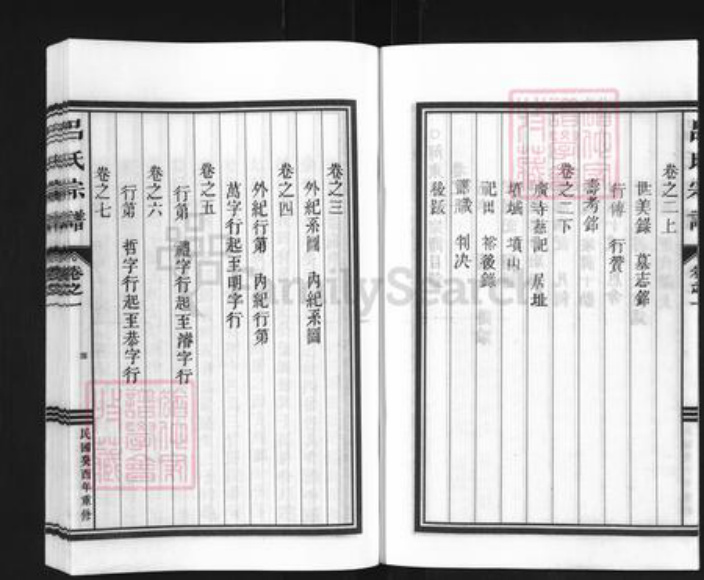 卷之二上
世美錄 墓志銘
行傳 行贊
壽考銘
卷之二下
廣寺菴記 居址
墳域 墳山
祀田 裕後錄
譜議 判决
後跋
呂氏宗譜
卷之一
卷之三
外紀系圖 內紀系圖
卷之四
外紀行第 內紀行第
萬字行起至明字行
卷之五
行第 禮字行起至濬字行
卷之六
行第 哲字行起至恭字行
卷之七
呂氏宗譜
卷之一
民國癸酉年重修
FamilySearch